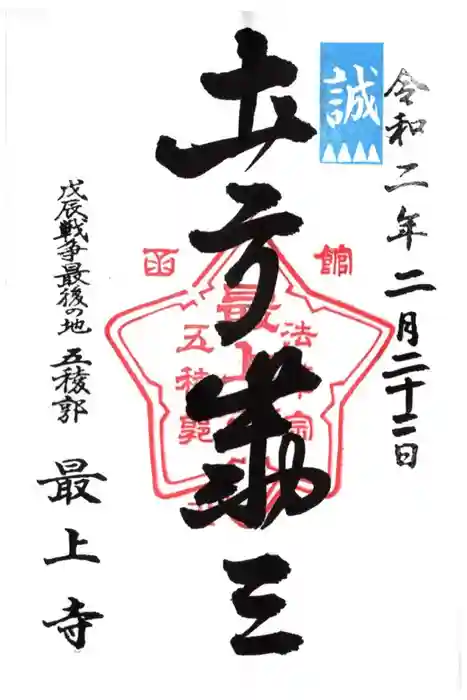 令和二年二月二十二日
誠
土方歳三
函館
最上寺
法華宗
五稜郭
戊辰戦争最後の地 五稜郭
最上寺